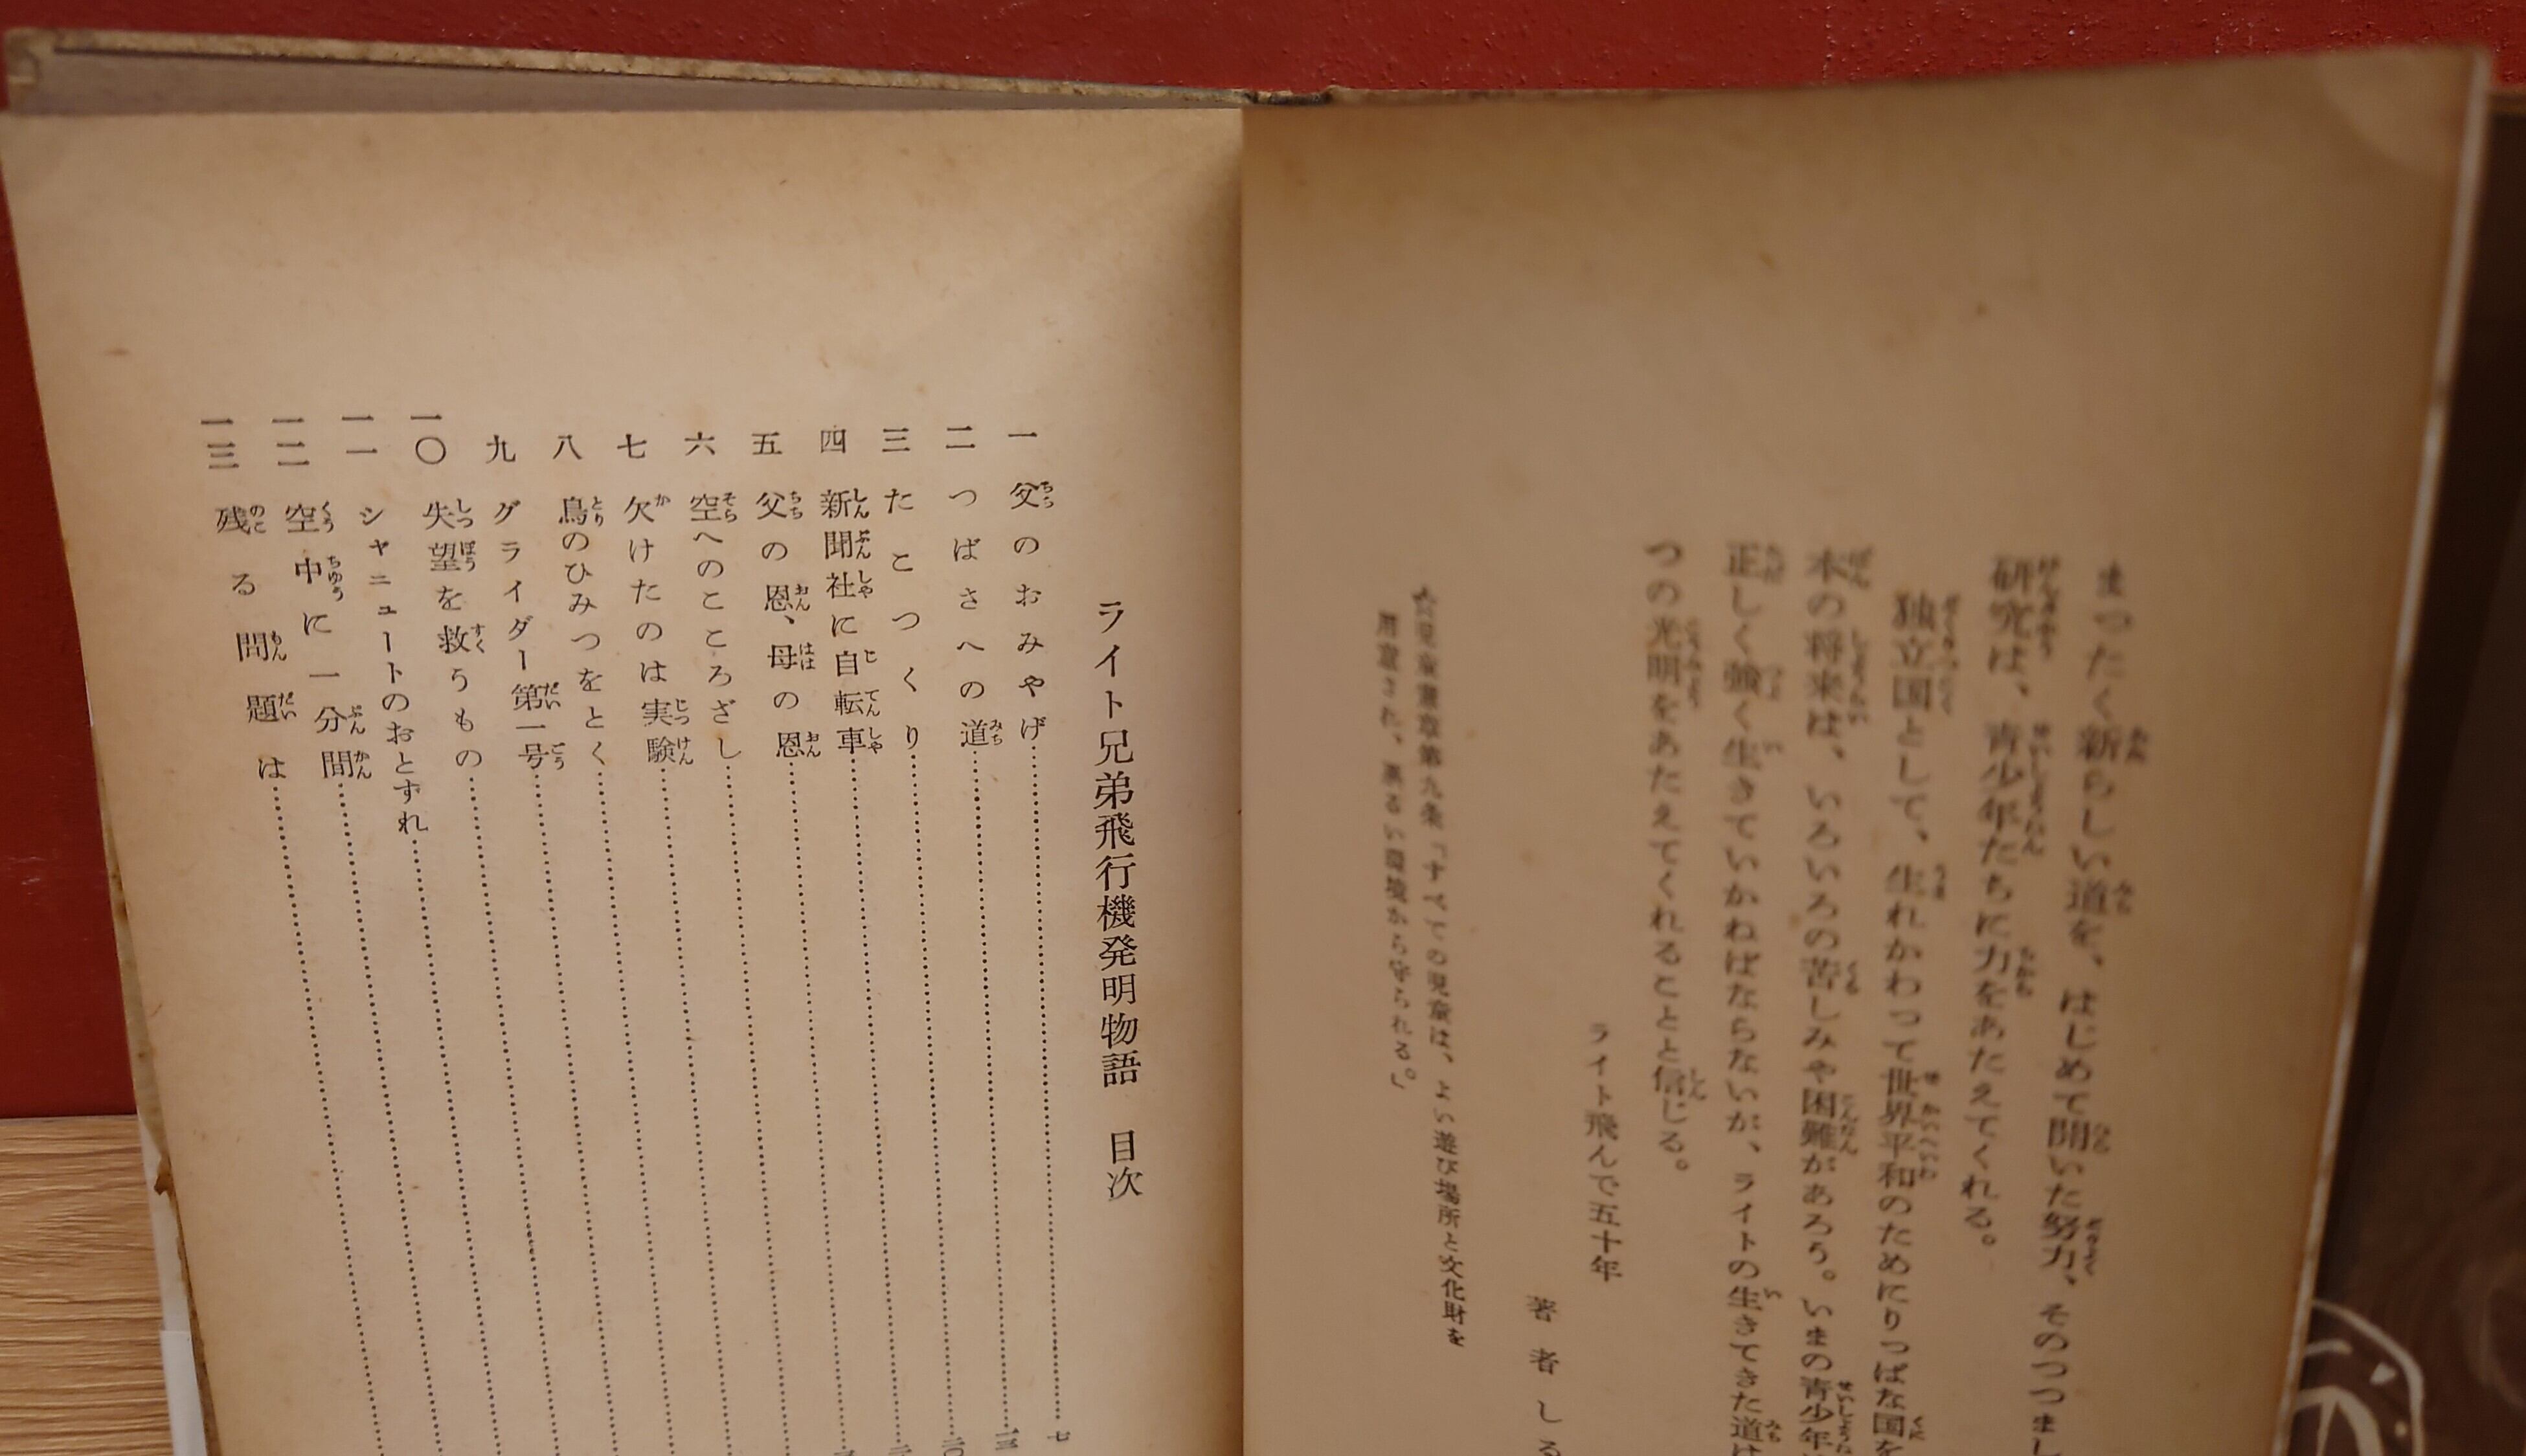 まつたく新らしい道を、はじめて開いた努力、そのつつまし
研究は、青少年たちに力をあたえてくれる。
独立国として、生れかわって世界平和のためにりっぱな国を
木の将来は、いろいろの苦しみや困難があろう。いまの青少年
正しく強く生きていかねばならないが、ライトの生きてきた道は
つの光明をあたえてくれることと信じる。
ライト飛んで五十年
著者しる
☆児童憲章第九条「すべての児童は、よい遊び場所と文化財を
用意され、悪るい環境から守られる。」
ライト兄弟飛行機発明物語 目次
一 父のおみやげ……七
二 つばさへの道……一三
三 たこつくり……二〇
四 新聞社に自転車……
五 父の恩、母の恩……
六 空へのこころざし……
七 欠けたのは実験……
八 鳥のひみつをとく……
九 グライダー第一号……
一〇 失望を救うもの……
一一 シャニュートのおとずれ……
一二 空中に一分間……
一三 残る問題は……